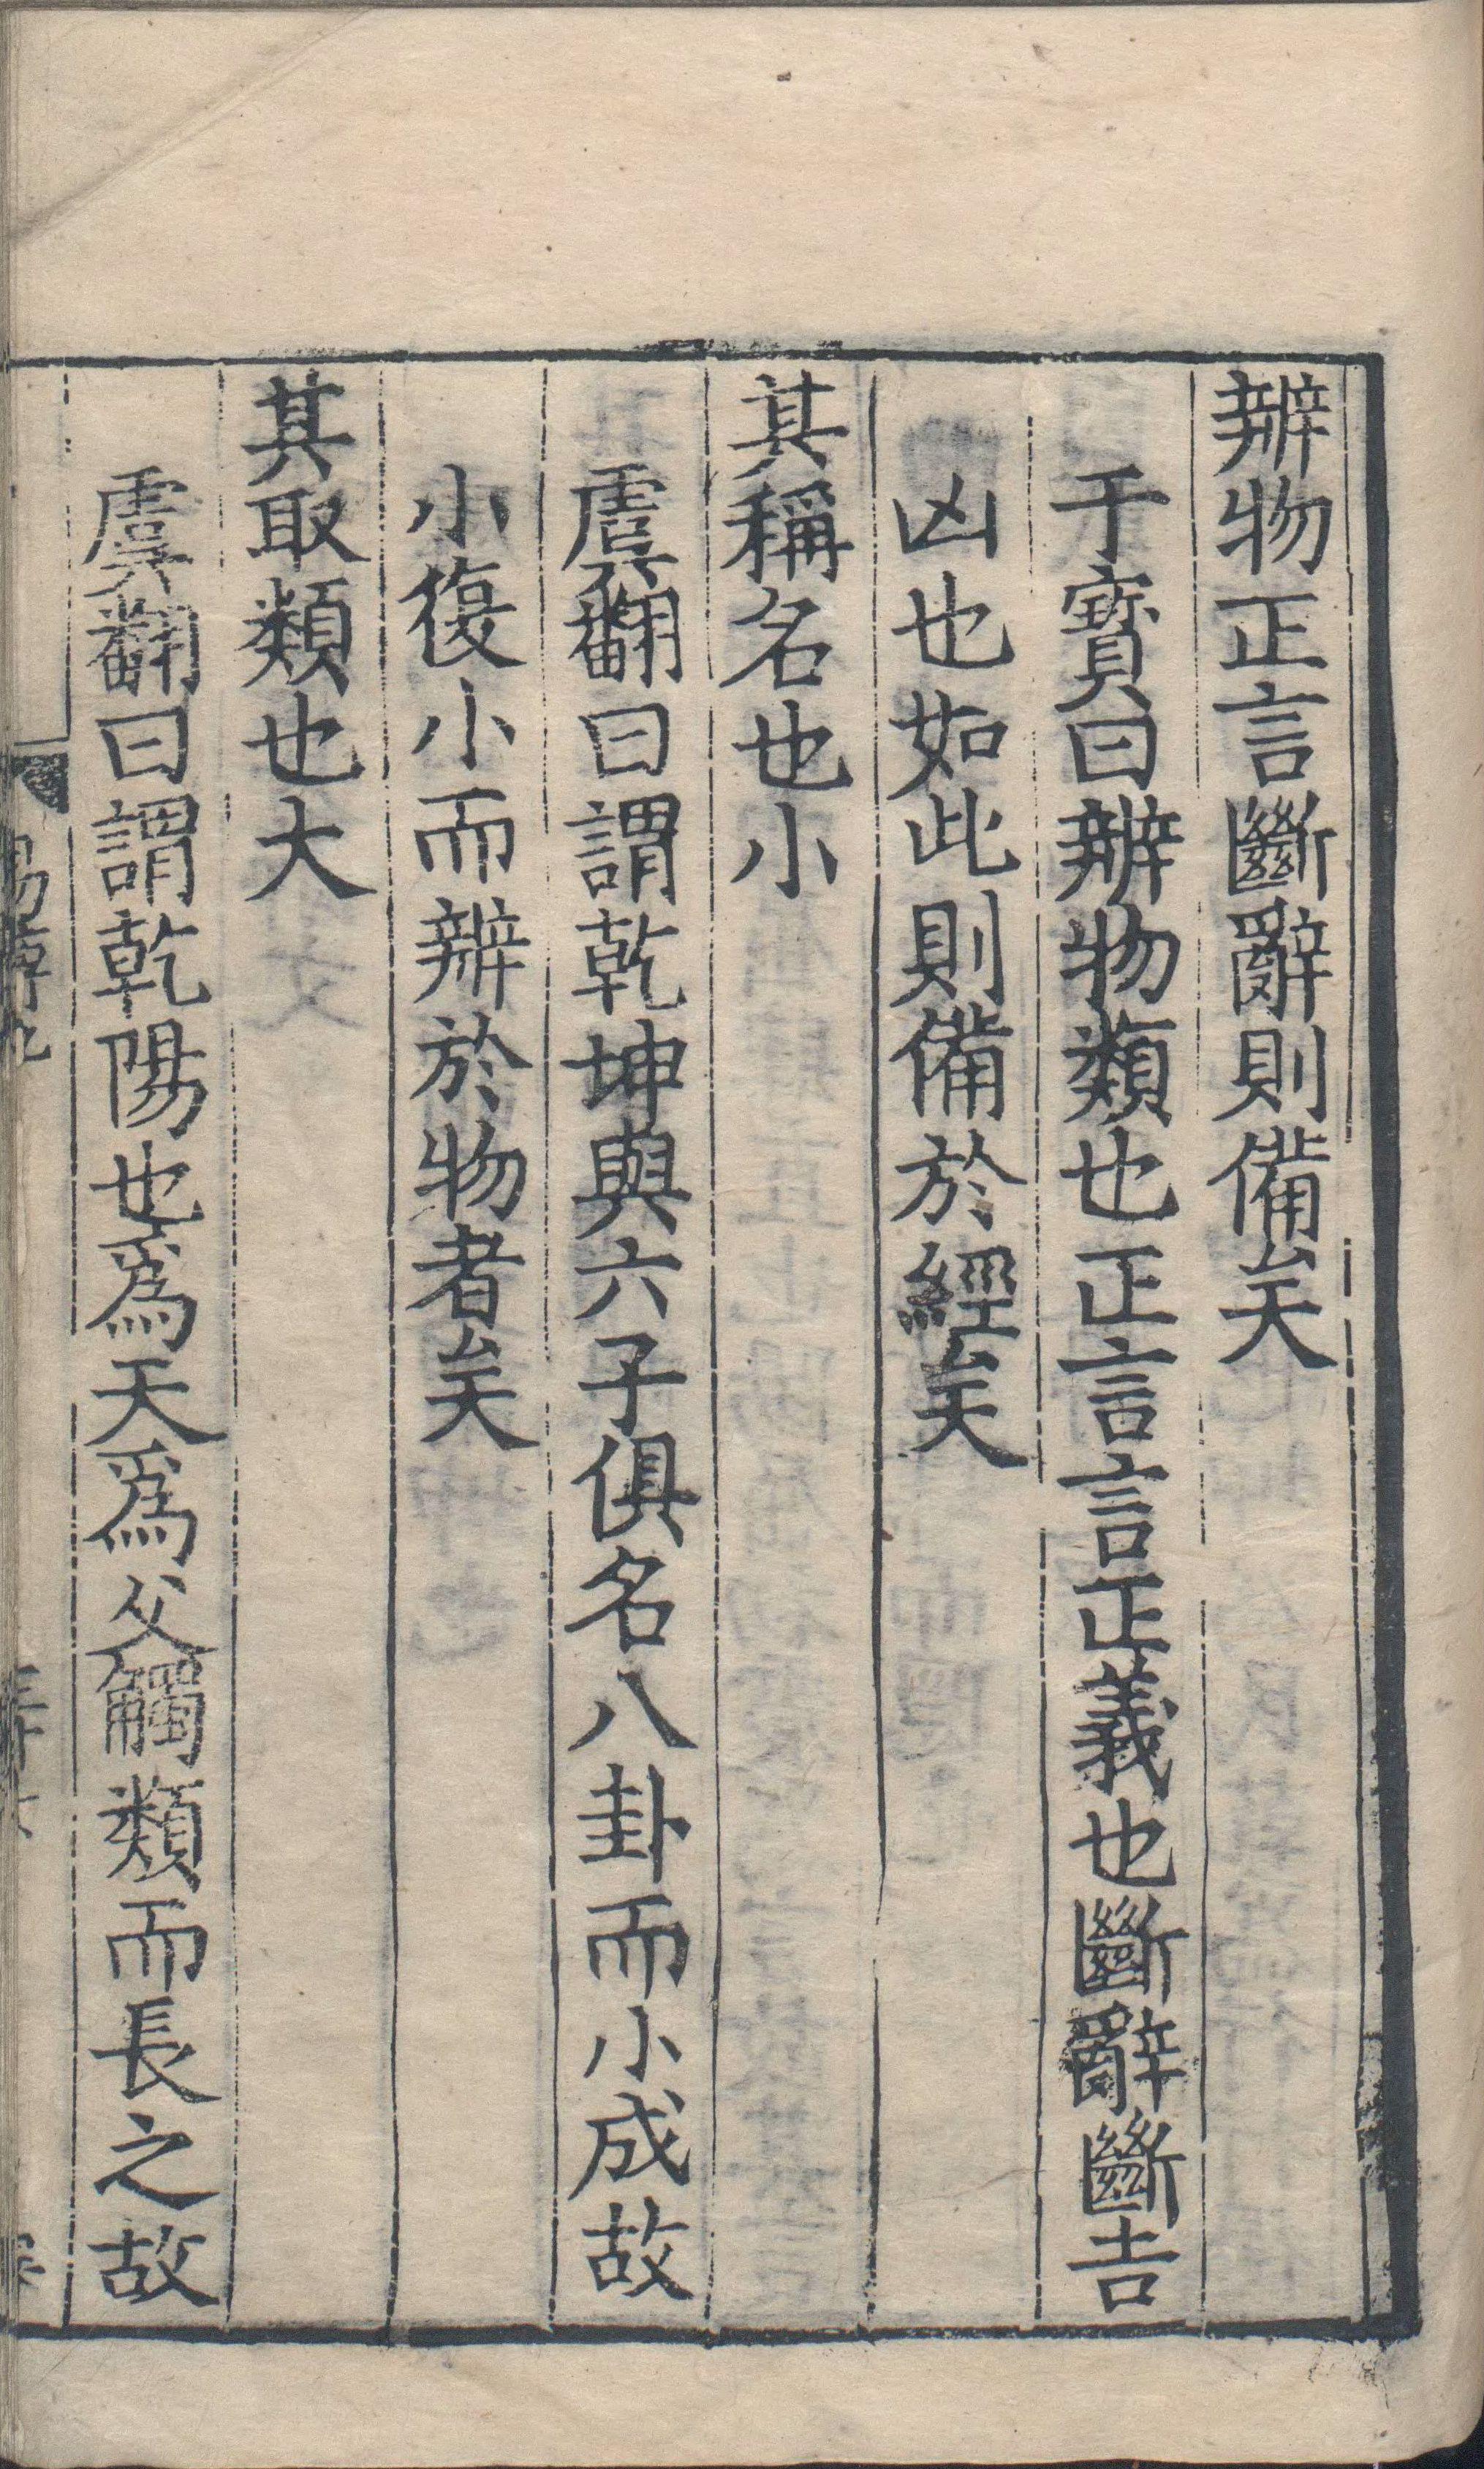 辨物正言斷辭則備矣
干寶曰辨物類也正言言正義也斷辭斷吉
凶也如此則備於經矣
其稱名也小
虞翻曰謂乾坤與六子俱名八卦而小成故
小復小而辨於物者矣
其取類也大
虞翻曰謂乾陽也為天為父觸類而長之故